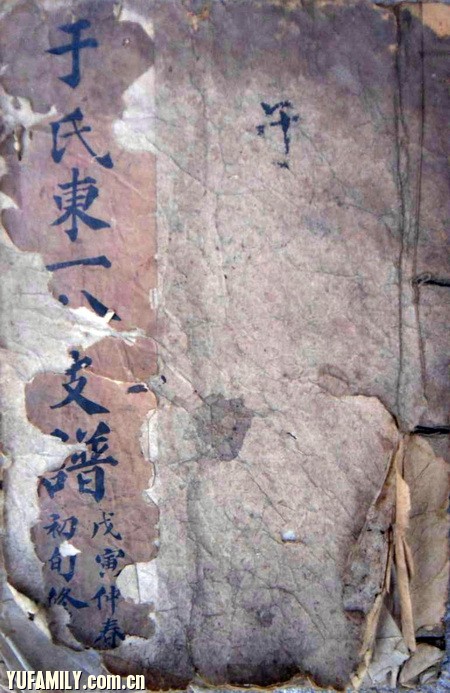 于氏東一八支譜
戊寅仲春
初旬修
YUFAMILY.com.cn